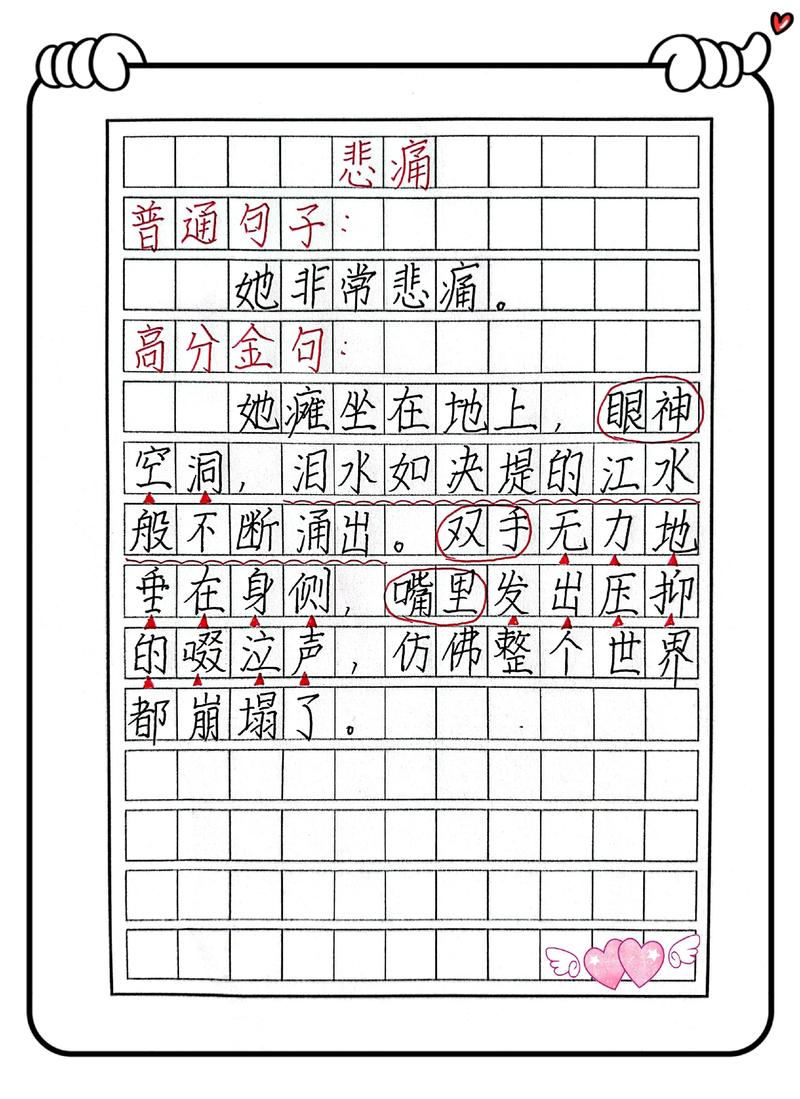 悲痛
普通句子：
她非常悲痛。
高分金句：
她瘫坐在地上，眼神
空洞，泪水如决堤的江水
般不断涌出。双手无力地
垂在身侧，嘴里发出压抑
的啜泣声，仿佛整个世界
都崩塌了。